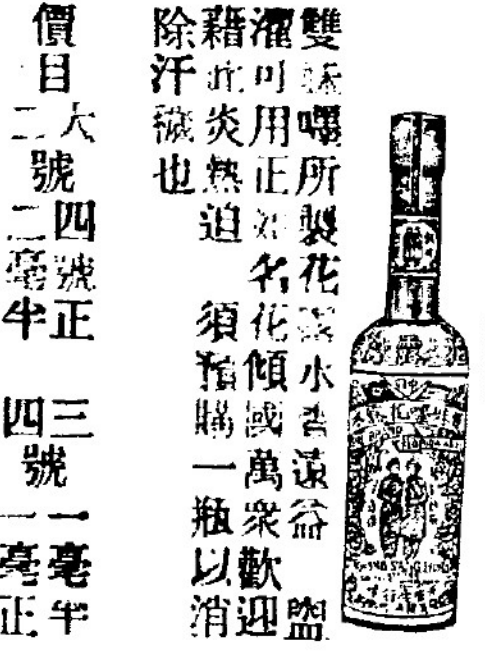 雙妹嚜所製花露水香遠益 盥
濯可用正如名花傾國萬衆歡迎
藉此炎熱迫 須預購一瓶以消
除汗穢也
價目
大號四號正 三號一毫半
二號二毫半 四號一毫正